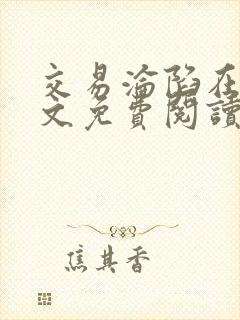 交易淪陷在
文免費閱讀
焦其香